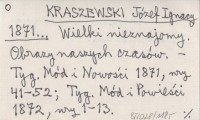 KRASZEWSKI Józef Ignacy
1871... Wielki nieznajomy.
Obrazy naszych czasów. –
Tyg. Mód i Nowości 1871, nry
41–52; Tyg. Mód i Powieści
1872, nry 1–13.